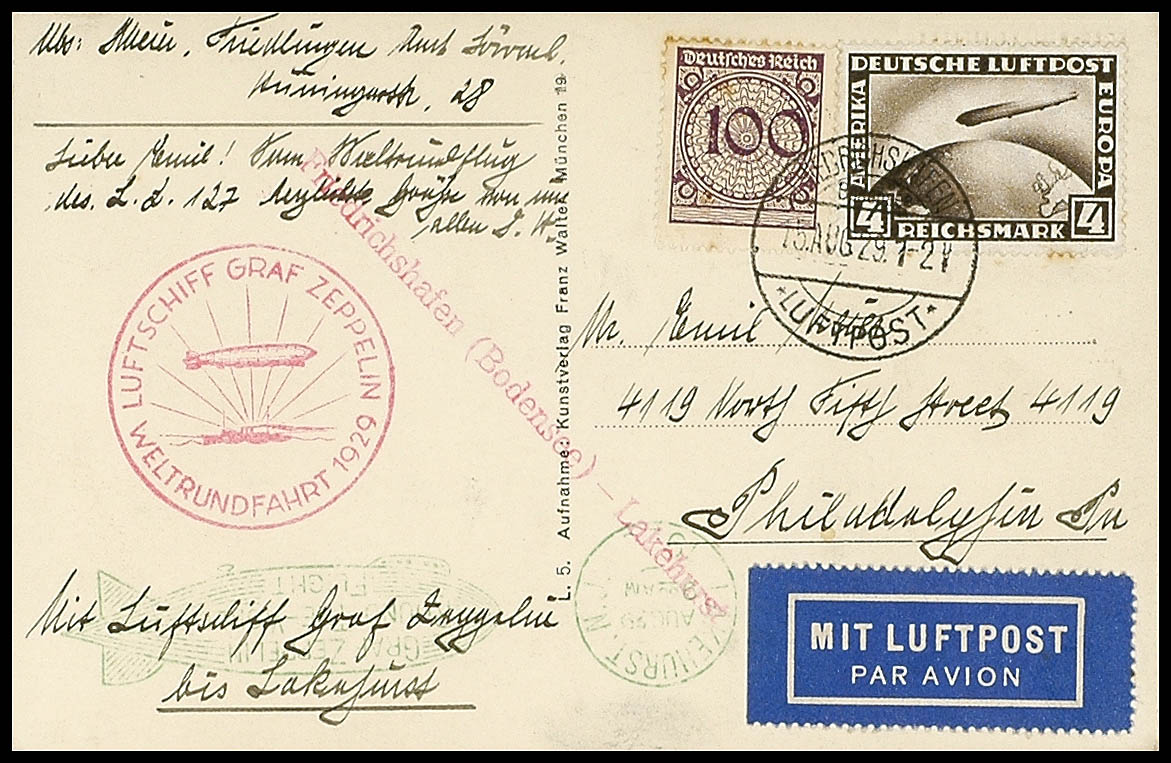 Abs: Rhein, Friedlingen Amt Lörrach
Hüningerstr. 28
Lieber Emil! Vom Weltrundflug
des L. Z. 127 herzliche Grüße von uns
allen
LUFTSCHIFF GRAF ZEPPELIN
WELTRUNDFAHRT 1929
Friedrichshafen (Bodensee) – Lakehurst
L. 5. Aufnahme: Kunstverlag Franz Walter München 19
Deutsches Reich
100
DEUTSCHE LUFTPOST
AMERIKA
EUROPA
4 REICHSMARK 4
FRIEDRICHSHAFEN
AUG 29. 1-2
* LUFTPOST *
Mr. Emil
4119 North Fifth Street 4119
Philadelphia Pa
Mit Luftschiff Graf Zeppelin
bis Lakehurst
GRAF ZEPPELIN
FLIGHT
LAKEHURST, N.J.
AUG 29
MIT LUFTPOST
PAR AVION